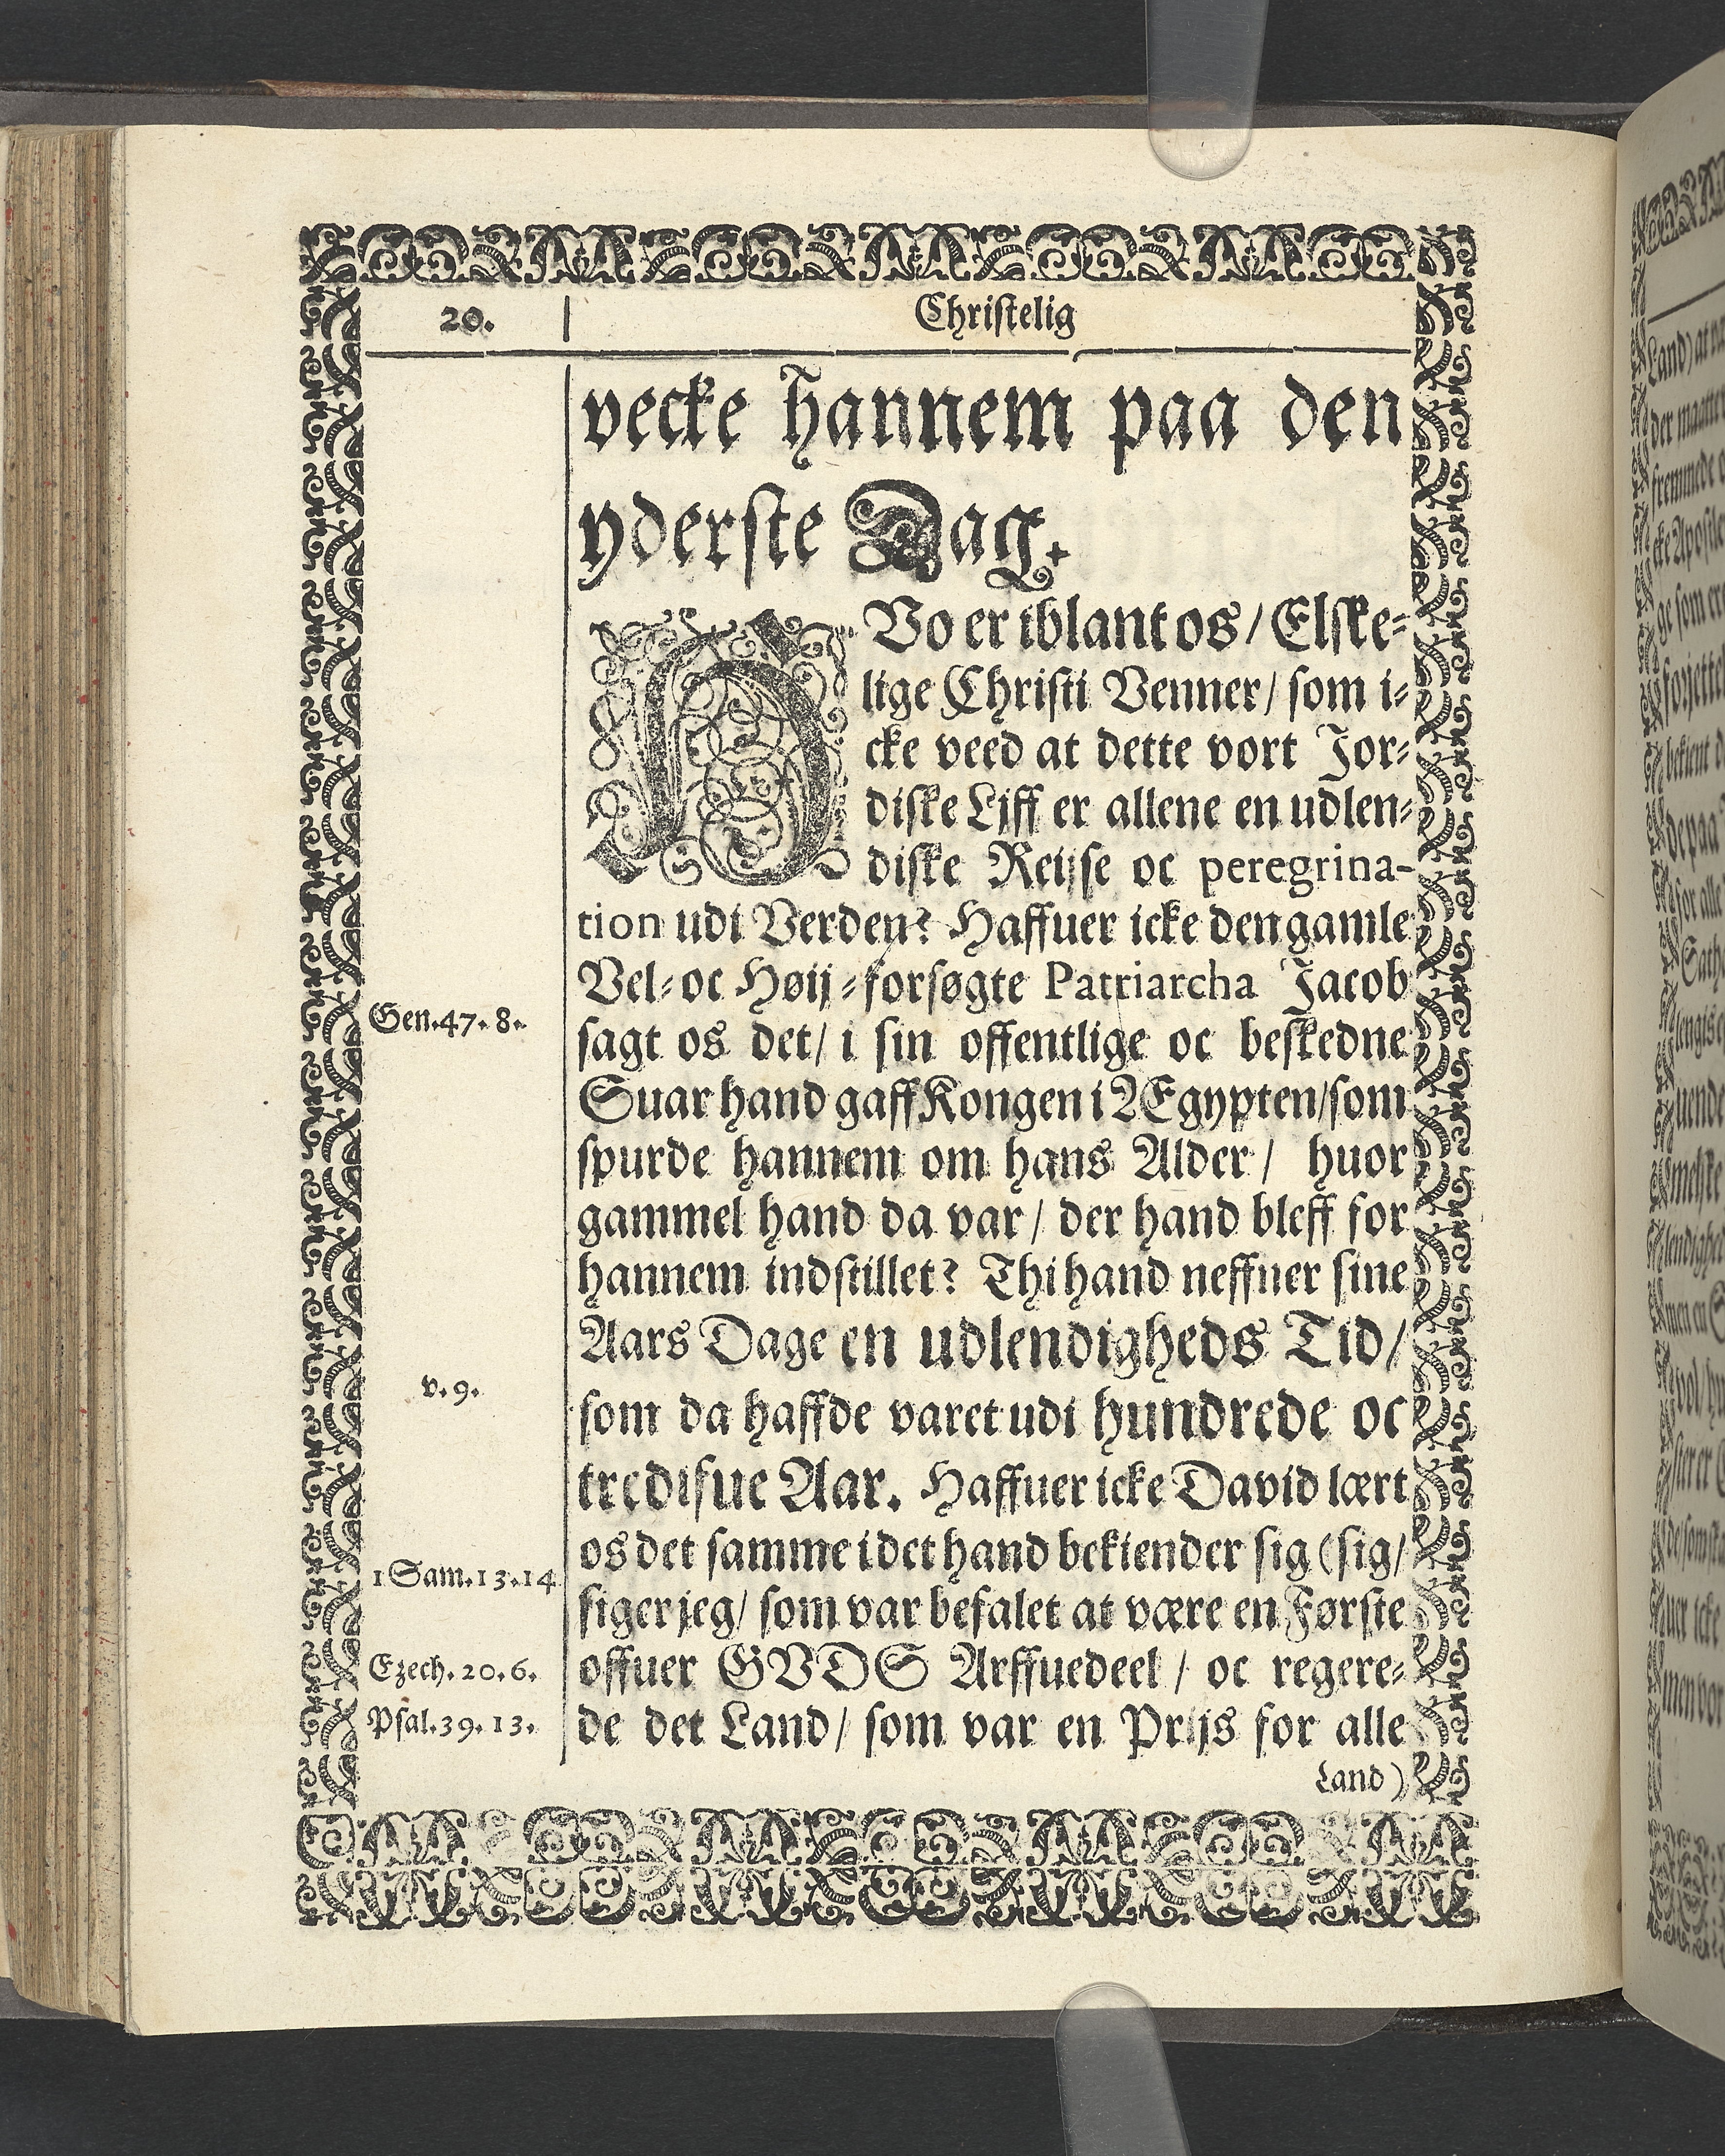 20.
Christelig
vecke hannem paa den
yderste Dag.
HVo er iblant os/ Elske-
lige Christi Venner/ som i-
cke veed at dette vort Jor-
diske Liff er allene en udlen-
diske Reijse oc peregrina-
tion udi Verden? Haffuer icke den gamle
Vel-oc Høij-forsøgte Patriarcha Jacob
Gen.47.8.
sagt os det/ i sin offentlige oc beskedne
Suar hand gaff Kongen i Ægypten/som
spurde hannem om hans Alder/ huor
gammel hand da var/ der hand bleff for
hannem indstillet? Thi hand neffner sine
Aars Dage en udlendigheds Tid/
v.9.
som da haffde varet udi hundrede oc
tredisue Aar. Haffuer icke David lært
os det samme i det hand bekiender sig (sig/
1 Sam.13.14
siger jeg/ som var befalet at være en Første
Ezech.20.6.
offuer GVDS Arffuedeel/ oc regere-
Psal.39.13.
de det Land/ som var en Prijs for alle
Land)